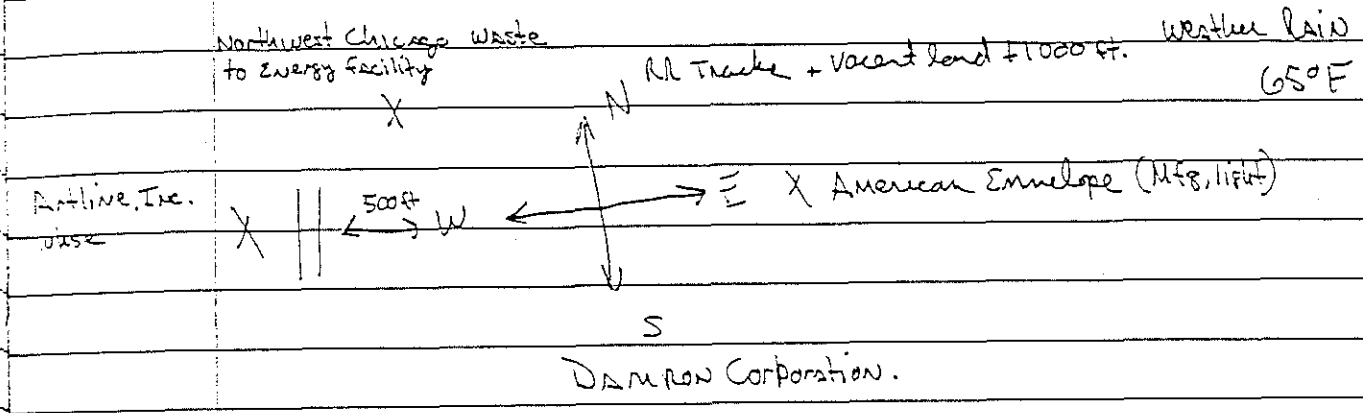 Northwest Chicago Waste
to Energy facility
Weather Rain
RR Tracks + Vacant land ±1000 ft.
65°F
X
N
Artline, Inc.
X
500ft
W
E X American Ennelope (Mfg, light)
S
DAMRON Corporation.